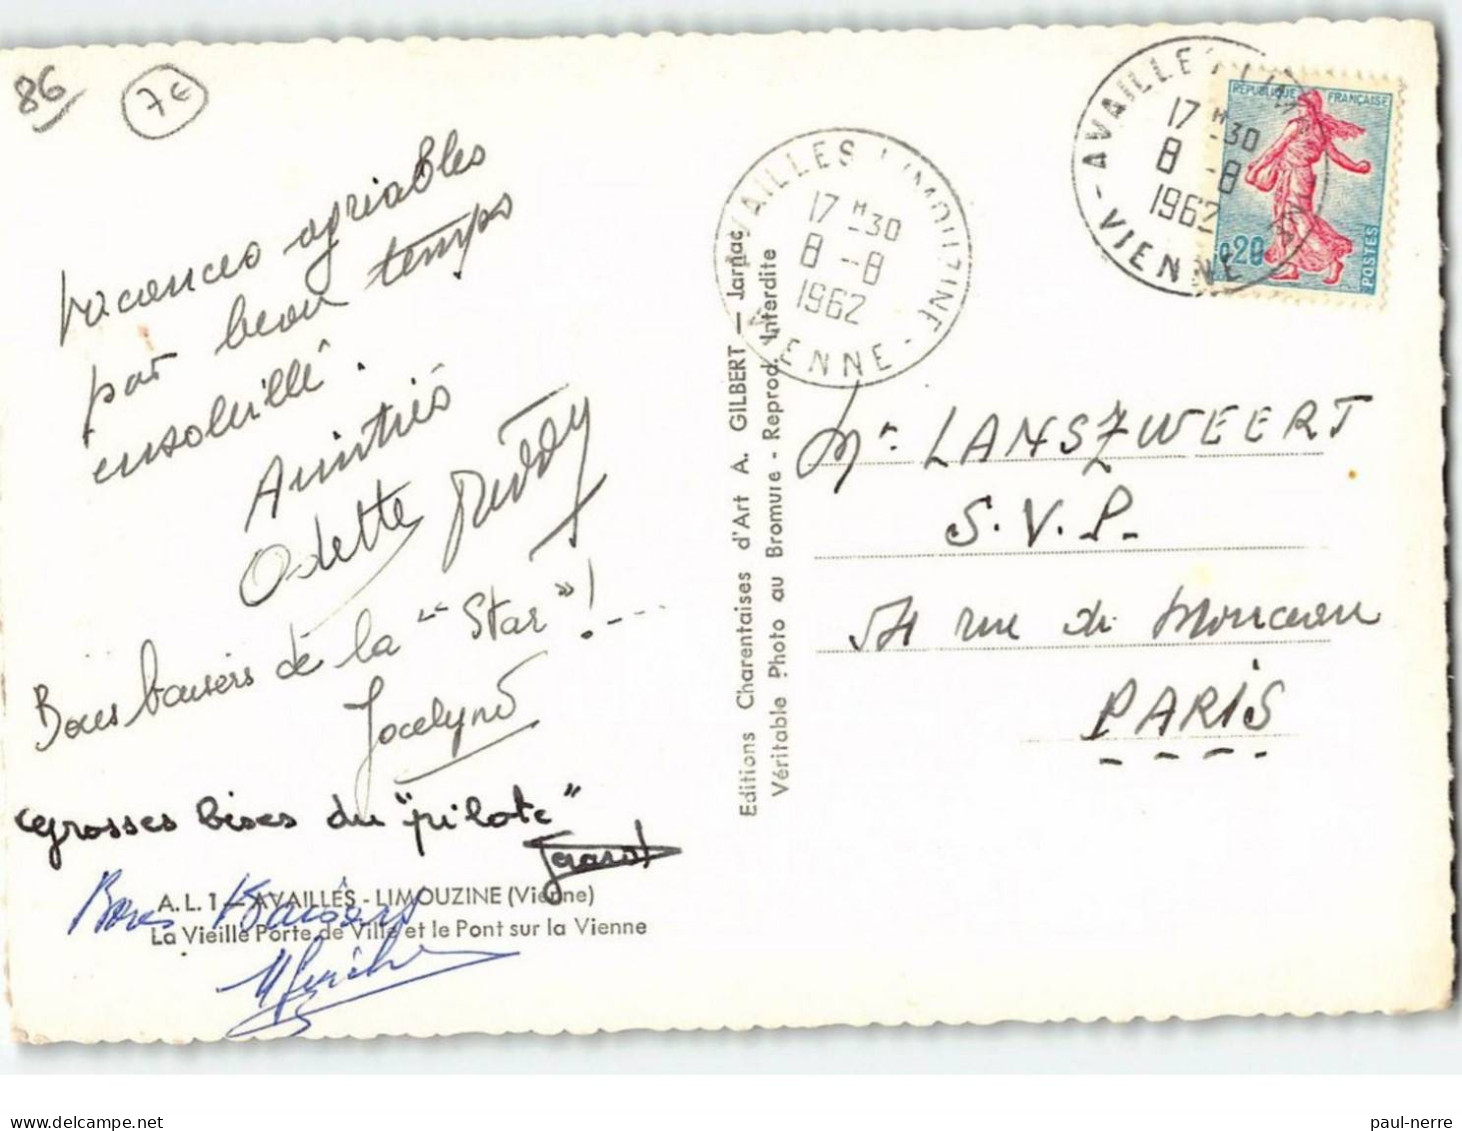 86
7€
vacances agriables
par beau temps
ensoleillé.
Amitiés
Odette
Bons baisers de la "Star"!---
Jocelyne
grosses bises du "pilote"
Bons Baisers
A.L. 1 — AVAILLES - LIMOUZINE (Vienne)
La Vieille Porte de Ville et le Pont sur la Vienne
Editions Charentaises d'Art A. GILBERT — Jarnac
Véritable Photo au Bromure - Reprod. Interdite
AVAILLES LIMOUZINE
17 H 30
8 - 8
1962
VIENNE
AVAILLES LIMOUZINE
17 H 30
8 - 8
1962
- VIENNE -
REPUBLIQUE FRANÇAISE
0,20
POSTES
Mr LANSZWEERT
S.V.P.
54 rue de Monceau
PARIS
paul-nerre